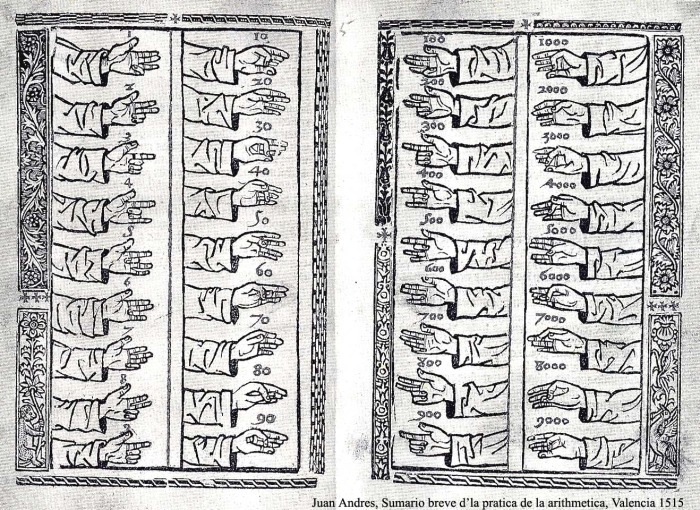 1
2
3
4
5
6
7
8
9
10
20
30
40
50
60
70
80
90
5
100
200
300
400
500
600
700
800
900
1000
2000
3000
4000
5000
6000
7000
8000
9000
Juan Andres, Sumario breve d'la pratica de la arithmetica, Valencia 1515